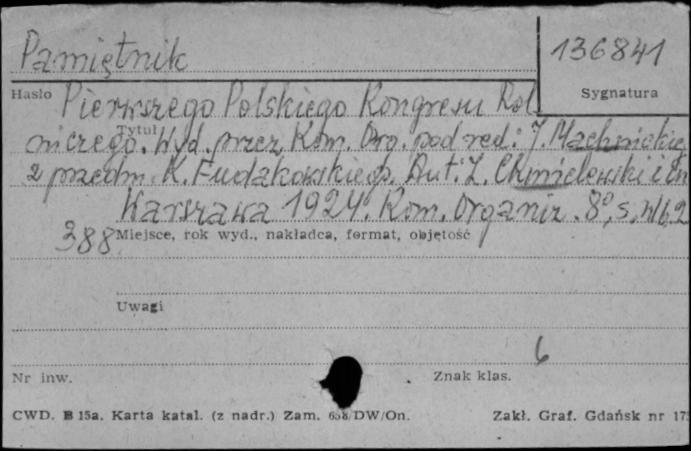 Pamiętnik
136841
Hasło
Sygnatura
Pierwszego Polskiego Kongresu Rol
Tytuł
niczego. Wyd. przez Kom. Org. pod red.: J.
z przedm. K. Fudakowskiego. Aut.: Z. Chmielewski i in
Warszawa 1924. Kom. Organiz. 8°, s.
388
Miejsce, rok wyd., nakładca, format, objętość
Uwagi
6
Nr inw.
Znak klas.
CWD. B 15a. Karta katal. (z nadr.) Zam. 658/DW/On.
Zakł. Graf. Gdańsk nr